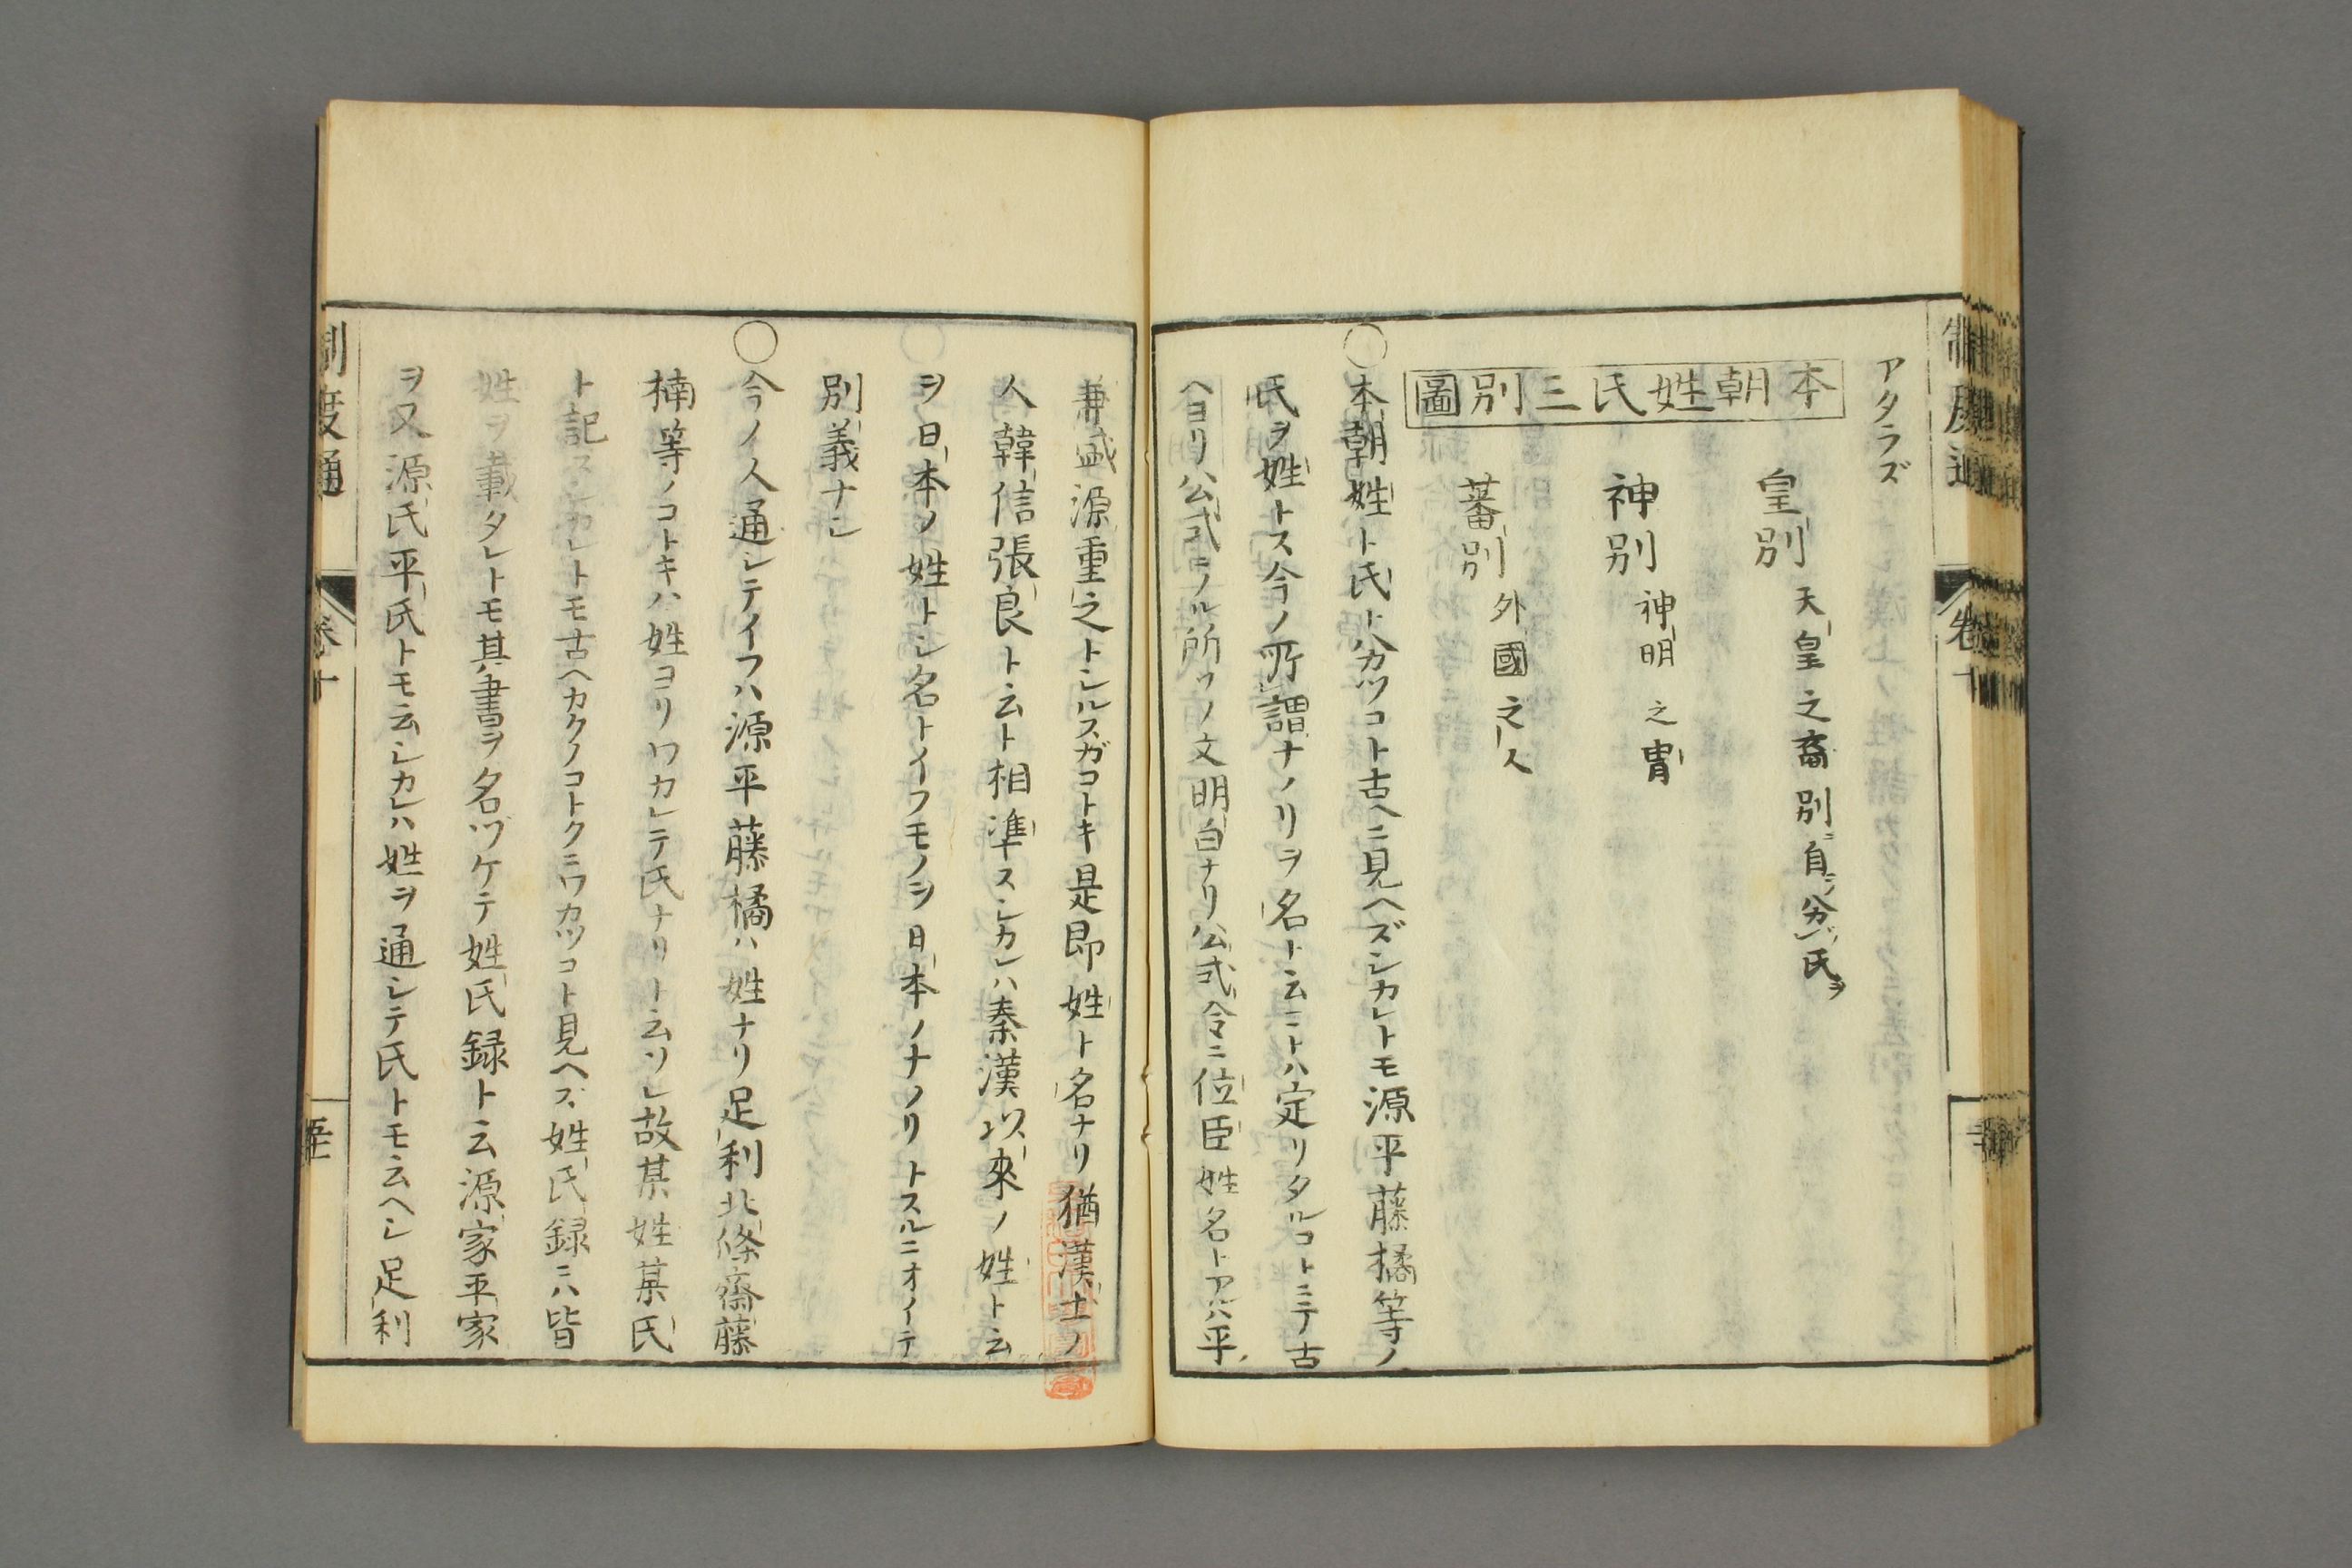 アタラズ
本朝姓氏三別圖
皇別 天皇之裔別ニ自ラ分ツ氏ヲ
神別 神明之冑
蕃別 外國之人
〇本朝姓ト氏トハカツコト古ヘニ見ヘズシカレトモ源平藤橘等ノ
氏ヲ姓トス今ノ所謂ナノリヲ名ト云コトハ定リタルコトニテ古
ヘヨリ公式ニノル所ソノ文明白ナリ公式令ニ位臣姓名トアルハ平
兼盛源重之トシルスガコトキ是即姓ト名ナリ猶漢土ノ
人韓信張良ト云ト相準スシカレハ秦漢以來ノ姓ト云
ヲ日本ノ姓トシ名トイフモノヲ日本ノナノリトスルニオイテ
別義ナシ
〇今ノ人通シテイフハ源平藤橘ハ姓ナリ足利北條齋藤
楠等ノコトキハ姓ヨリワカレテ氏ナリト云ソレ故某姓某氏
ト記スシカレトモ古ヘカクノコトクニワカツコト見ヘズ姓氏録ニハ皆
姓ヲ載タレトモ其書ヲ名ヅケテ姓氏録ト云源家平家
ヲ又源氏平氏トモ云シカレハ姓ヲ通シテ氏トモ云ヘシ足利
制度通
卷十